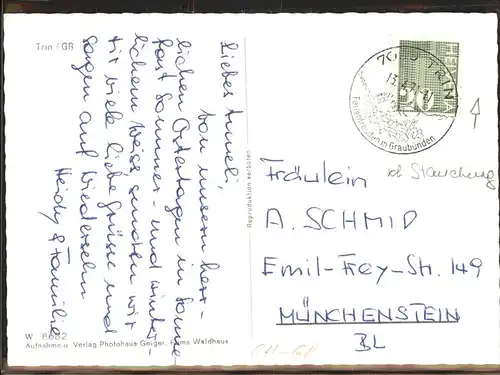 Trin / GR
Liebes Anneli,
von unsern herr-
lichen Ostertagen in Sonne
fast Sommer- und winter-
lichem Weiss senden wir
dir viele liebe Grüsse und
sagen auf Wiedersehn
Heidy & Familie
W 8682
Aufnahme u. Verlag Photohaus Geiger, Flims Waldhaus
Reproduktion verboten
TRIN
13.4.71
Ferienfreuden in Graubünden
HELVETIA
20
Stauchung
Fräulein
A. SCHMID
Emil-Frey-Str. 149
MÜNCHENSTEIN
BL